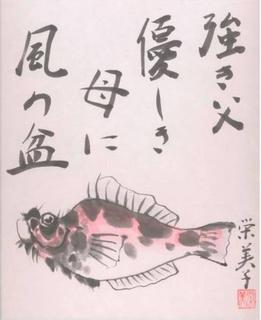 強き父
優しき
母に
風の盆
栄美子